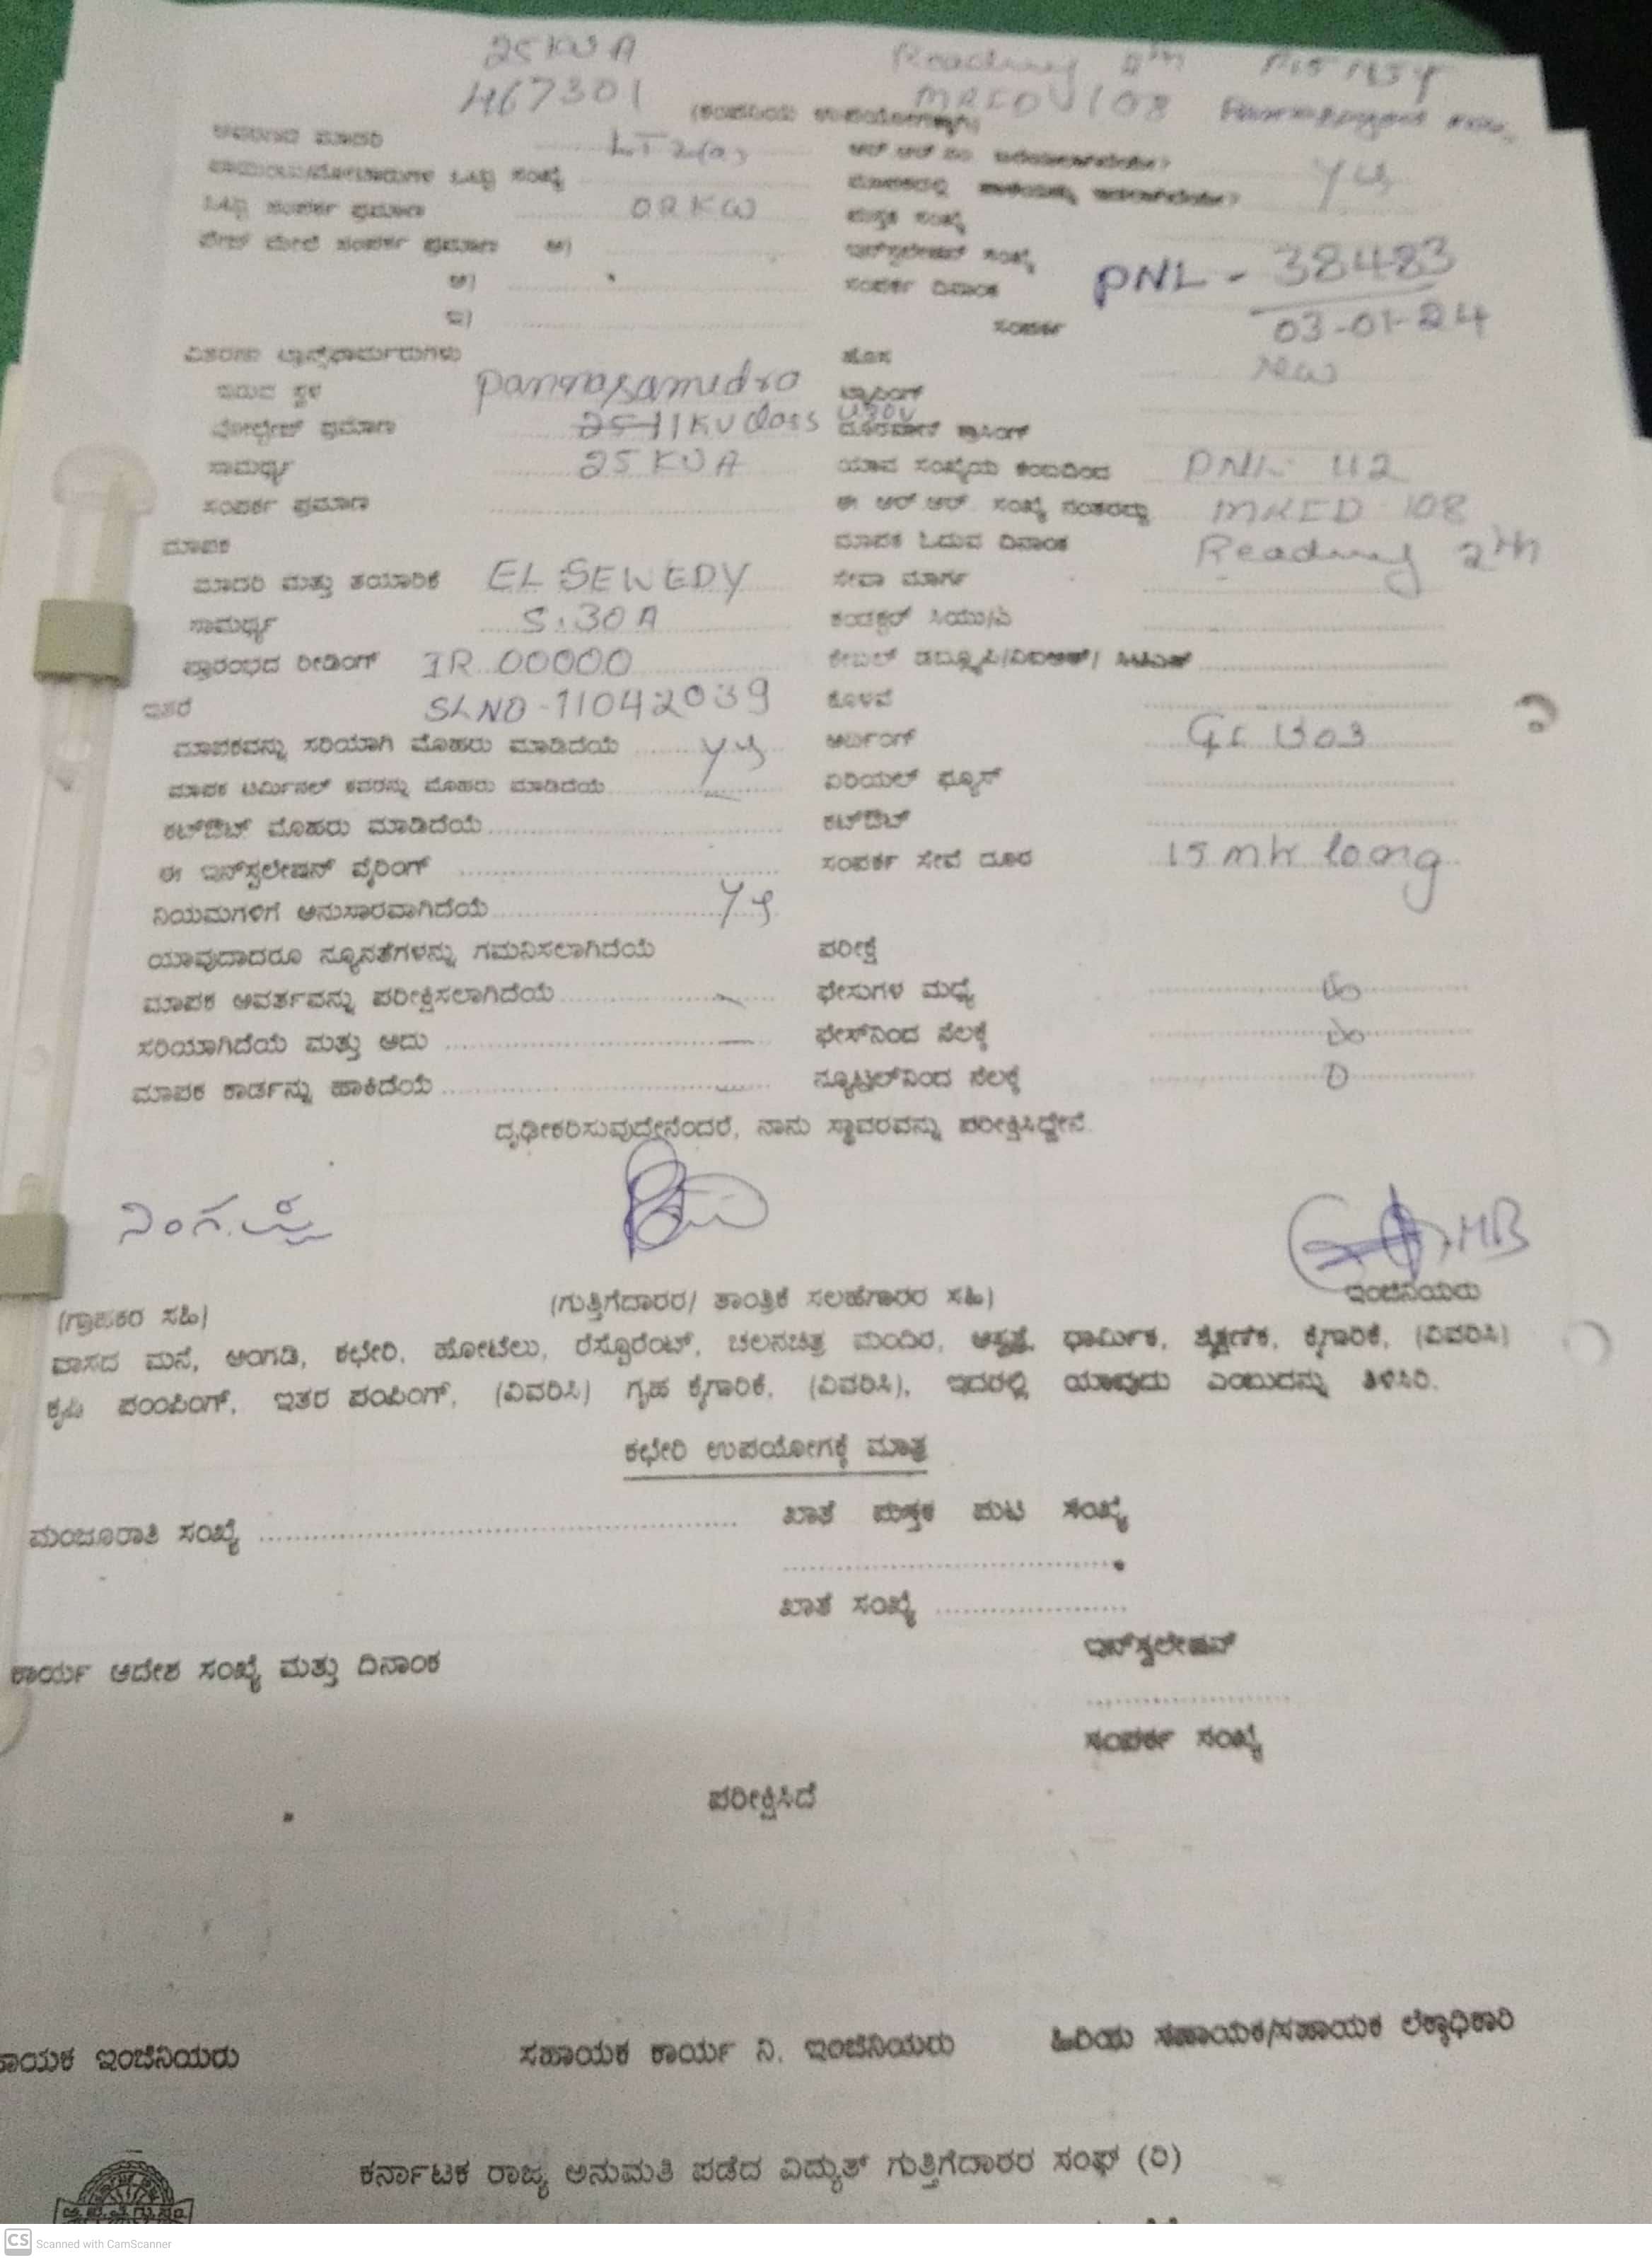 25 KVA Reading 2th
467301 (ಕಂಪನಿಯ ಉಪಯೋಗಕ್ಕಾಗಿ) 108
ಮಾದರಿ LT
ಒಟ್ಟು ಸಂಖ್ಯೆ
ಒಟ್ಟು ಸಂಪರ್ಕ ಪ್ರಮಾಣ 02 KW ಪುಸ್ತಕ ಸಂಖ್ಯೆ
ಮೇಲೆ ಸಂಪರ್ಕ ಪ್ರಮಾಣ ಅ) ಇನ್‌ಸ್ಟಲೇಷನ್ ಸಂಖ್ಯೆ PNL - 38483
ಆ) ಸಂಪರ್ಕ ದಿನಾಂಕ 03-01-24
ಇ) ಸಂಪರ್ಕ
ವಿತರಣಾ ಟ್ರಾನ್ಸ್‌ಫಾರ್ಮರುಗಳು ಹೊಸ New
ಇರುವ ಸ್ಥಳ pannasamudra ಟ್ರ್ಯಾಪಿಂಗ್
ವೋಲ್ಟೇಜ್ ಪ್ರಮಾಣ 11KV class
ಸಾಮರ್ಥ್ಯ 25 KVA ಯಾವ ಸಂಖ್ಯೆಯ ಕಂಬದಿಂದ PNL 42
ಸಂಪರ್ಕ ಪ್ರಮಾಣ ಈ ಆರ್.ಆರ್. ಸಂಖ್ಯೆ ನಂತರದ್ದು 108
ಮಾಪಕ ಮಾಪಕ ಓದುವ ದಿನಾಂಕ Reading 2th
ಮಾದರಿ ಮತ್ತು ತಯಾರಿಕೆ EL SEWEDY ಸೇವಾ ಮಾರ್ಗ
ಸಾಮರ್ಥ್ಯ 5:30 A ಕಂಡಕ್ಟರ್ ಸಿಯು/ಎ
ಪ್ರಾರಂಭದ ರೀಡಿಂಗ್ IR 00000 ಕೇಬಲ್
ಇತರೆ SLNO-11042039 ಕೊಳವೆ
ಮಾಪಕವನ್ನು ಸರಿಯಾಗಿ ಮೊಹರು ಮಾಡಿದೆಯೆ yes ಅರ್ಥಿಂಗ್
ಮಾಪಕ ಟರ್ಮಿನಲ್ ಕವರನ್ನು ಮೊಹರು ಮಾಡಿದೆಯೆ ಏರಿಯಲ್ ಫ್ಯೂಸ್
ಕಟ್‌ಔಟ್ ಮೊಹರು ಮಾಡಿದೆಯೆ ಕಟ್‌ಔಟ್
ಈ ಇನ್‌ಸ್ಟಲೇಷನ್ ವೈರಿಂಗ್ ಸಂಪರ್ಕ ಸೇವೆ ದೂರ 15 mtr long
ನಿಯಮಗಳಿಗೆ ಅನುಸಾರವಾಗಿದೆಯೆ yes
ಯಾವುದಾದರೂ ನ್ಯೂನತೆಗಳನ್ನು ಗಮನಿಸಲಾಗಿದೆಯೆ ಪರೀಕ್ಷೆ
ಮಾಪಕ ಆವರ್ತವನ್ನು ಪರೀಕ್ಷಿಸಲಾಗಿದೆಯೆ ಫೇಸುಗಳ ಮಧ್ಯೆ
ಸರಿಯಾಗಿದೆಯೆ ಮತ್ತು ಅದು ಫೇಸ್‌ನಿಂದ ನೆಲಕ್ಕೆ
ಮಾಪಕ ಕಾರ್ಡನ್ನು ಹಾಕಿದೆಯೆ ನ್ಯೂಟ್ರಲ್‌ನಿಂದ ನೆಲಕ್ಕೆ 0
ದೃಢೀಕರಿಸುವುದೇನೆಂದರೆ, ನಾನು ಸ್ಥಾವರವನ್ನು ಪರೀಕ್ಷಿಸಿದ್ದೇನೆ.
MB
ಇಂಜಿನಿಯರು
(ಗ್ರಾಹಕರ ಸಹಿ) (ಗುತ್ತಿಗೆದಾರರ/ ತಾಂತ್ರಿಕ ಸಲಹೆಗಾರರ ಸಹಿ)
ವಾಸದ ಮನೆ, ಅಂಗಡಿ, ಕಛೇರಿ, ಹೋಟೆಲು, ರೆಸ್ಟೊರೆಂಟ್, ಚಲನಚಿತ್ರ ಮಂದಿರ, ಆಸ್ಪತ್ರೆ, ಧಾರ್ಮಿಕ, ಶೈಕ್ಷಣಿಕ, ಕೈಗಾರಿಕೆ, (ವಿವರಿಸಿ)
ಕೃಷಿ ಪಂಪಿಂಗ್, ಇತರ ಪಂಪಿಂಗ್, (ವಿವರಿಸಿ) ಗೃಹ ಕೈಗಾರಿಕೆ, (ವಿವರಿಸಿ), ಇದರಲ್ಲಿ ಯಾವುದು ಎಂಬುದನ್ನು ತಿಳಿಸಿರಿ.
ಕಛೇರಿ ಉಪಯೋಗಕ್ಕೆ ಮಾತ್ರ
ಮಂಜೂರಾತಿ ಸಂಖ್ಯೆ ಖಾತೆ ಪುಸ್ತಕ ಪುಟ ಸಂಖ್ಯೆ
ಖಾತೆ ಸಂಖ್ಯೆ
ಇನ್‌ಸ್ಟಲೇಷನ್
ಕಾರ್ಯ ಆದೇಶ ಸಂಖ್ಯೆ ಮತ್ತು ದಿನಾಂಕ
ಸಂಪರ್ಕ ಸಂಖ್ಯೆ
ಪರೀಕ್ಷಿಸಿದೆ
ಾಯಕ ಇಂಜಿನಿಯರು ಸಹಾಯಕ ಕಾರ್ಯ ನಿ. ಇಂಜಿನಿಯರು ಹಿರಿಯ ಸಹಾಯಕ/ಸಹಾಯಕ ಲೆಕ್ಕಾಧಿಕಾರಿ
ಕರ್ನಾಟಕ ರಾಜ್ಯ ಅನುಮತಿ ಪಡೆದ ವಿದ್ಯುತ್ ಗುತ್ತಿಗೆದಾರರ ಸಂಘ (ರಿ)
CS Scanned with CamScanner